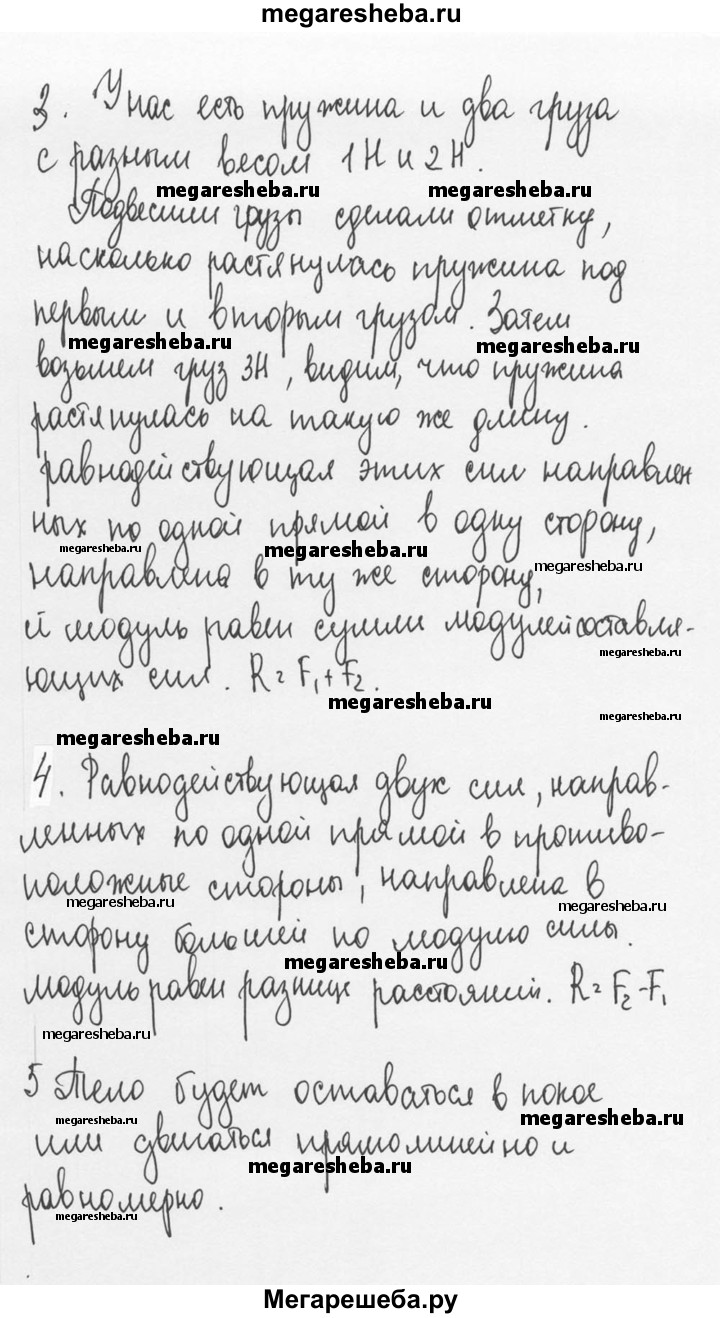 megaresheba.ru
3. У нас есть пружина и два груза
с разным весом 1Н и 2Н.
megaresheba.ru megaresheba.ru
Подвесили грузы сделали отметку,
насколько растянулась пружина под
первым и вторым грузом. Затем
megaresheba.ru megaresheba.ru
возьмем груз 3Н, видим, что пружина
растянулась на такую же длину.
равнодействующая этих сил направлен
ных по одной прямой в одну сторону,
megaresheba.ru megaresheba.ru megaresheba.ru
направлена в ту же сторону,
и модуль равен сумми модулей составля-
megaresheba.ru
ющих сил. R = F₁ + F₂.
megaresheba.ru megaresheba.ru
megaresheba.ru
4. Равнодействующая двух сил, направ-
ленных по одной прямой в противо-
положные стороны, направлена в
megaresheba.ru megaresheba.ru
сторону большей по модулю силы.
megaresheba.ru
модуль равен разнице расстояний. R = F₂ - F₁
megaresheba.ru
5 Тело будет оставаться в покое
megaresheba.ru megaresheba.ru
или двигаться прямолинейно и
megaresheba.ru
равномерно.
megaresheba.ru
Мегарешеба.ру